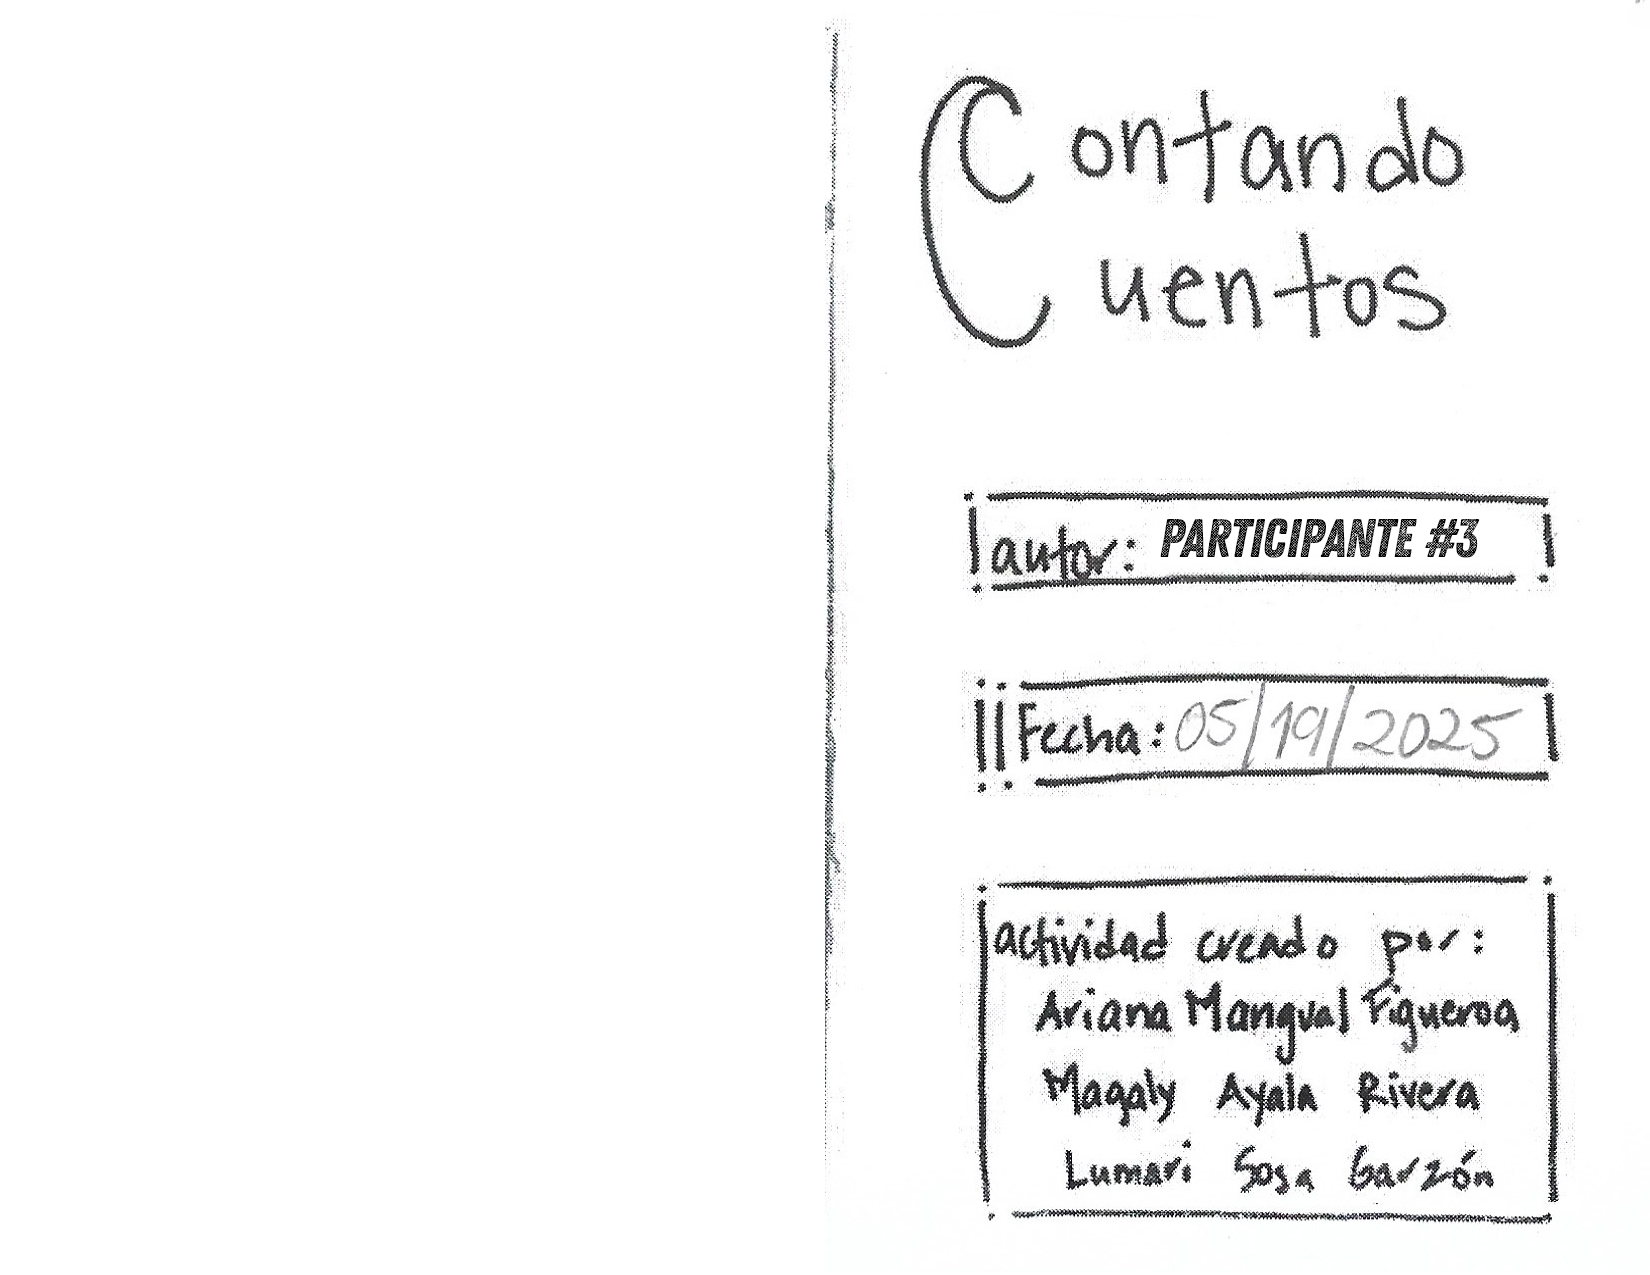 Contando
Cuentos
autor: PARTICIPANTE #3
Fecha: 05/19/2025
actividad creado por:
Ariana Mangual Figueroa
Magaly Ayala Rivera
Lumari Sosa Garzón